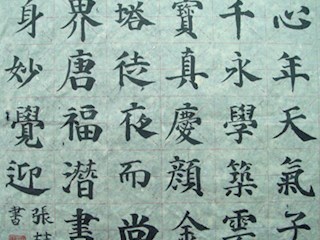 心年天氣子
千永學築雲
寶真慶顏金
塔徒夜而尚
界唐福潛書
身妙覺迎
張書